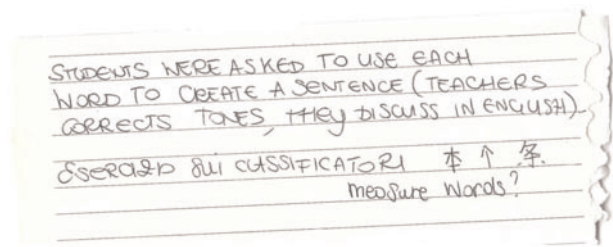 STUDENTS WERE ASKED TO USE EACH
WORD TO CREATE A SENTENCE (TEACHERS
CORRECTS TONES, THEY DISCUSS IN ENGLISH)
ESERCIZIO SUI CLASSIFICATORI 本 个 条
measure words?